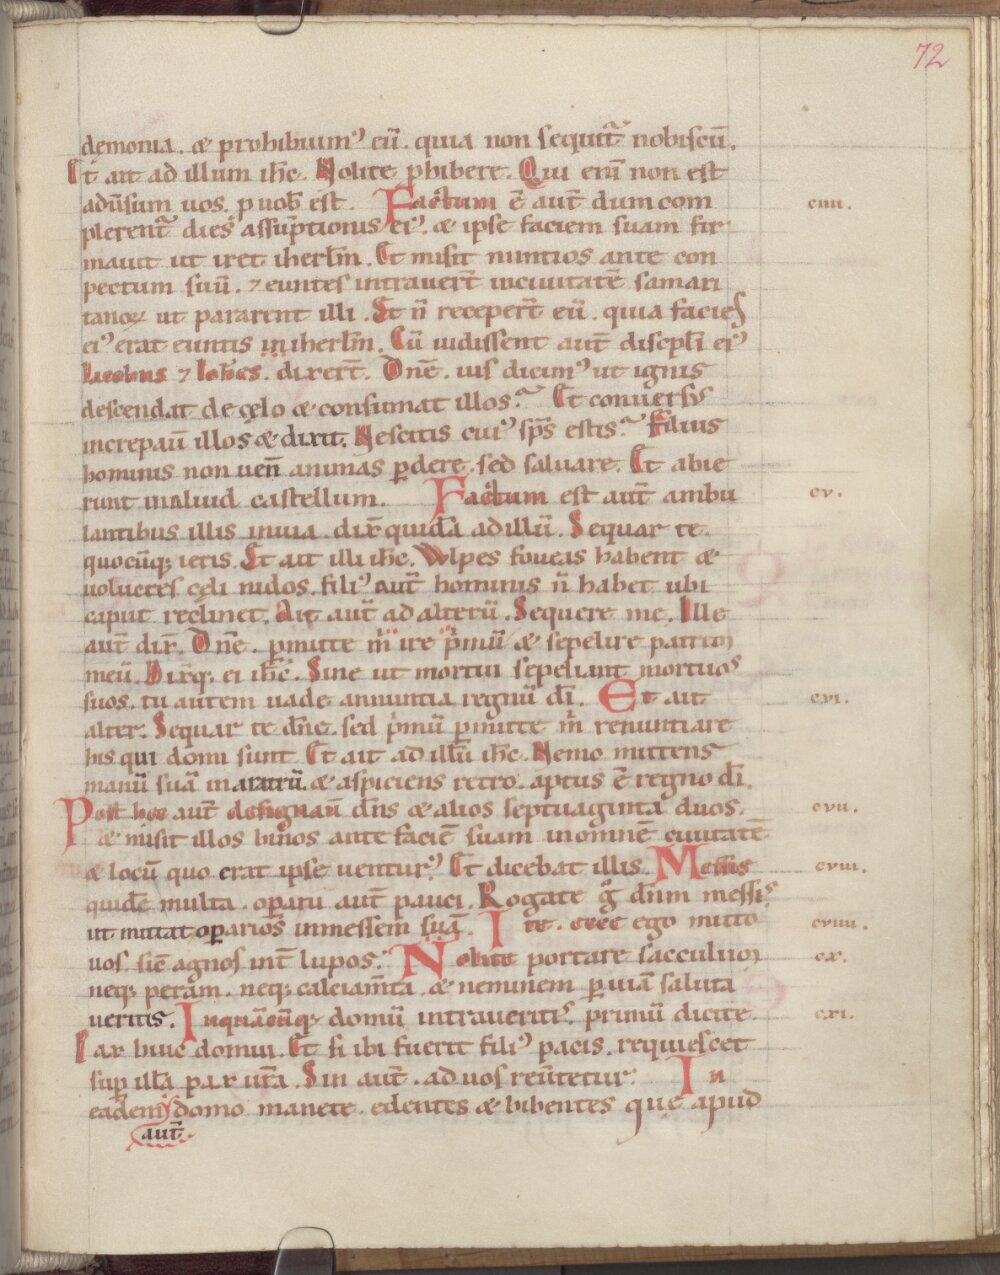 72
demonia. & prohibuimꝰ eū. quia non sequit᷑ nobiscū.
Et ait ad illum ihc̄. Nolite ꝓhibere. Qui enī non est
adūsum uos. ꝑ uob̄ est. Factum ē aut̄ dum com ciiii.
plerent᷑ dies assūptionis eiꝰ. & ipse faciem suam fir
mauit ut iret iherl̄m. Et misit nuntios ante con
pectum suū. ⁊ euntes intrauert̄ inciuitatē samari
tanoꝝ ut pararent illi. Et n̄ recepert̄ eū. quia facies
eiꝰ erat euntis in iherl̄m. Cū uidissent aut̄ discipl̄i eiꝰ
Iacobus ⁊ Ioh̄es. dixert̄. Dn̄e. uis dicimꝰ ut ignis
descendat de cęlo & consumat illos. Et conuersꝰ
increpauı̄ illos & dixit. Nescitis cuiꝰ sp̄s estis. Filius
hominis non uen̄ animas ꝑdere. sed saluare. Et abie
runt inaliud castellum. Factum est aut̄ ambu cv.
lantibus illis inuia. dix̄ quidā ad illū. Sequar te
quocūq; ieris. Et ait illi ihc̄. Wlpes foueas habent &
uolucres cęli nidos. filiꝰ aut̄ hominis n̄ habet ubi
caput reclinet. Ait aut̄ ad alterū. Sequere me. Ille
aut̄ dix̄. Dn̄e. ꝑmitte m̄ ire p̄mū & sepelire patrem
meū. Dix̄q; ei ihc̄. Sine ut mortui sepeliant mortuos
suos. tu autem uade annuntia regnū dī. Et ait cvi.
alter. Sequar te dn̄e. sed p̄mū ꝑmitte m̄ renuntiare
his qui domi sunt. Et ait ad illū ihc̄. Nemo mittens
manū suā in aratrū & aspiciens retro. aptus ē regno dī.
Post hec aut̄ designauı̄ dn̄s & alios septuaginta duos. cvii.
& misit illos binos ante faciē suam inomnē ciuitatē
& locū quo erat ipse uenturꝰ. Et dicebat illis. Messis cviii.
quidē multa. oꝑarii aut̄ pauci. Rogate g̊ dn̄m messis
ut mittat oꝑarios inmessem suā. Ite. ecce ego mitto cviiii.
uos. sic̄ agnos int̄ lupos. Nolite portare sacculum cx.
neq; peram. neq; calciam̄ta. & neminem ꝑ uiam saluta
ueritis. Inquācūq; domū intraueritis. primū dicite. cxi.
Pax huic domui. Et si ibi fuerit filiꝰ pacis. requiescet
suꝑ illā pax ur̄a. Sin aut̄. ad uos reūtetur. In
eadem domo manete. edentes & bibentes quę apud
aut̄